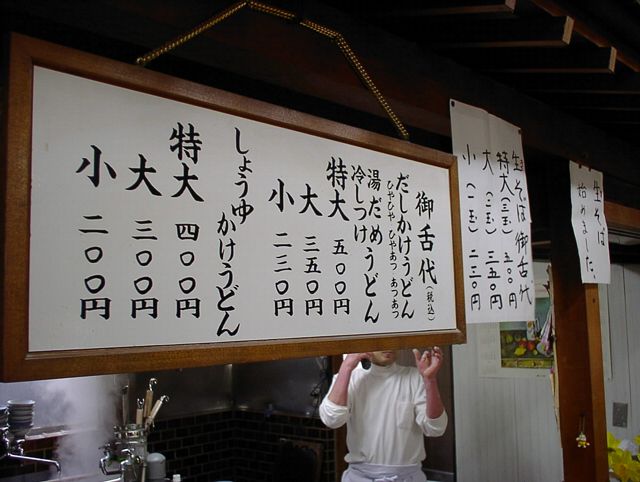 御舌代(税込)
だしかけうどん
ひやひや ひやあつ あつあつ
湯だめうどん
冷しつけ
特大 五〇〇円
大 三五〇円
小 二三〇円
しょうゆかけうどん
特大 四〇〇円
大 三〇〇円
小 二〇〇円
生そば御舌代
特大(三玉)五〇〇円
大(二玉)三五〇円
小(一玉)二三〇円
生そば
始めました。